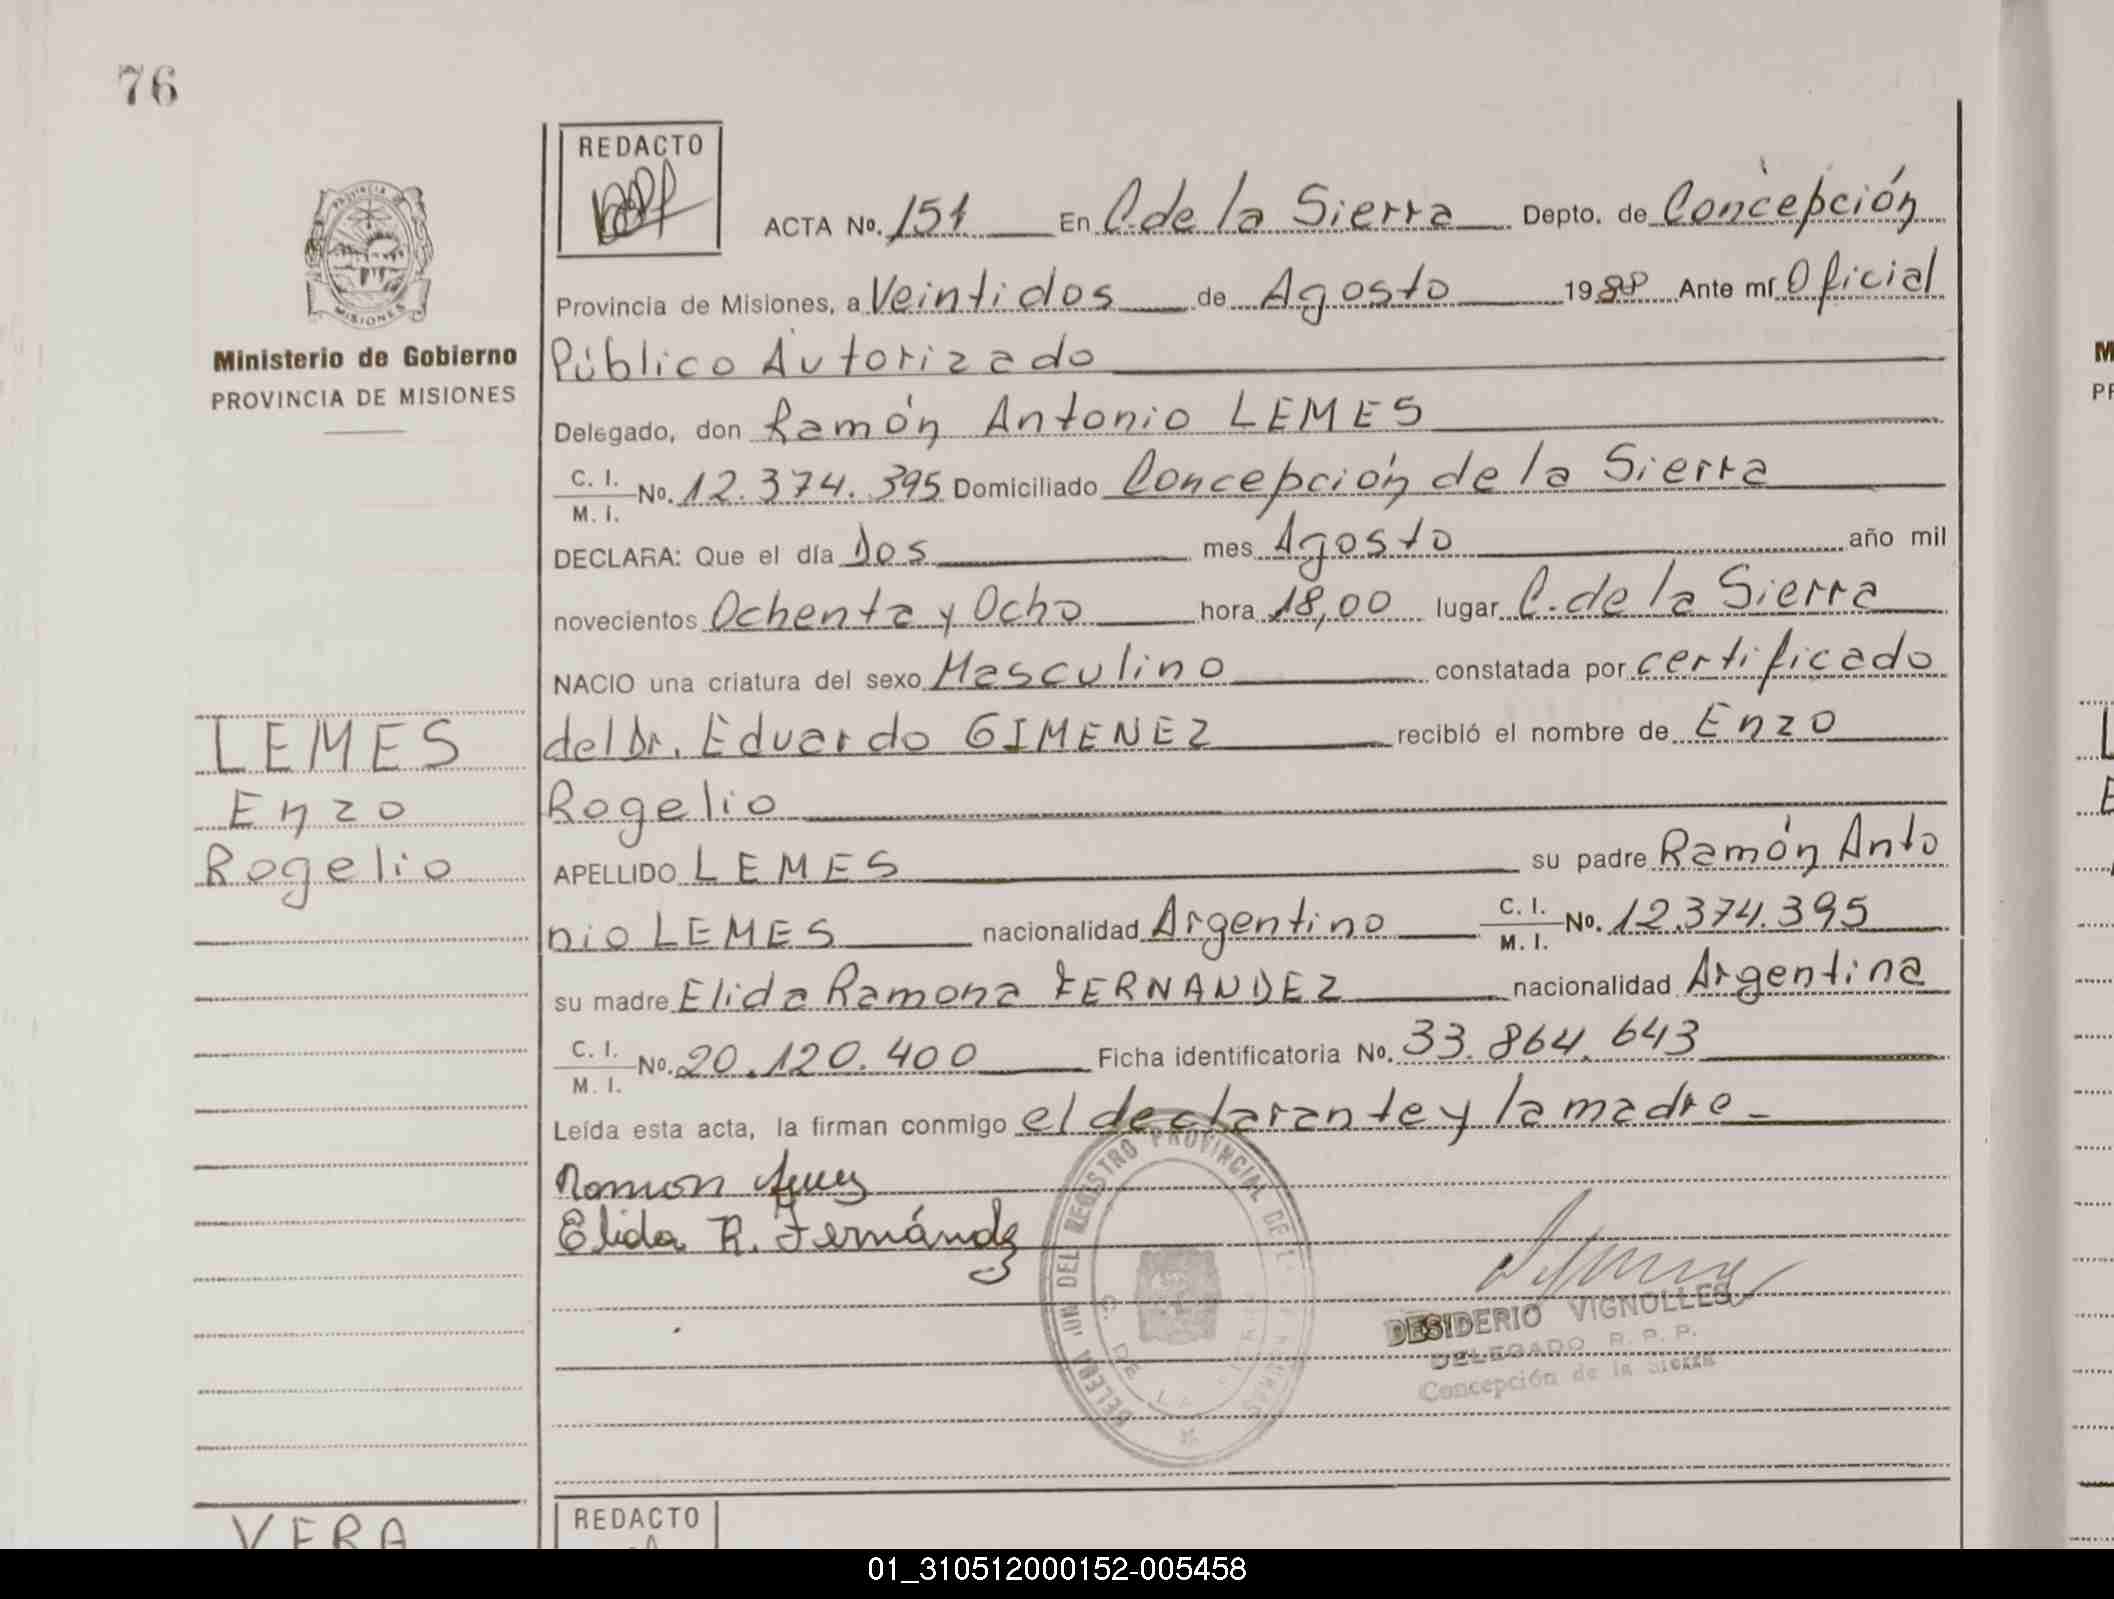 76
REDACTO
ACTA No. 151 En C. de la Sierra Depto. de Concepción
Provincia de Misiones, a Veintidos de Agosto 1988 Ante mí Oficial
Ministerio de Gobierno
PROVINCIA DE MISIONES
Público Autorizado
Delegado, don Ramón Antonio LEMES
C. I.
M. I.
No. 12.374.395 Domiciliado Concepción de la Sierra
DECLARA: Que el día Dos mes Agosto año mil
novecientos Ochenta y Ocho hora 18,00 lugar C. de la Sierra
NACIO una criatura del sexo Masculino constatada por certificado
LEMES
Enzo
Rogelio
del Dr. Eduardo GIMENEZ recibió el nombre de Enzo
Rogelio
APELLIDO LEMES su padre Ramón Anto
nio LEMES nacionalidad Argentino C. I. M. I. No. 12.374.395
su madre Elida Ramona FERNANDEZ nacionalidad Argentina
C. I.
M. I.
No. 20.120.400 Ficha identificatoria No. 33.864.643
Leída esta acta, la firman conmigo el declarante y la madre.-
Ramon
Elida R. Fernández
REGISTRO PROVINCIAL DE
C. DE LA
DESIDERIO VIGNOLLES
DELEGADO R. P. P.
Concepción de la Sierra
VERA
REDACTO
01_310512000152-005458